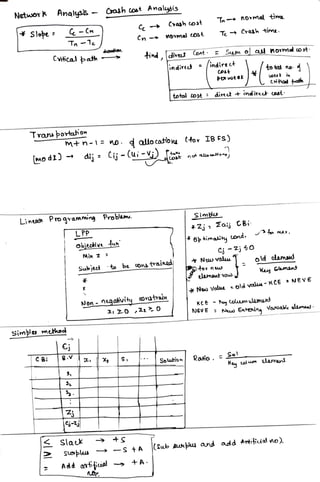 Network Analysis - Crash cost Analysis
* Slope = Cc - Cn / Tn - Tc
Cc → Crash cost
Cn → normal cost
Tn → normal time
Tc → Crash time.
Critical path
duration
find,
direct cost = Sum of all normal cost.
indirect = (indirect cost per week) * (total no of week in critical path)
total cost : direct + indirect cost.
Transportation
m+n-1 = no. of allocations (for IBFS)
[modi] → dij = Cij - (ui - vj)
not allocations
Linear Programming Problem.
LPP
objective fun
Min Z =
Subject to be constrained
Non - negativity constrain
x1 ≥ 0, x2 ≥ 0
Simplex
* Zj = Σaij CBi
* Optimality cond.
for max.
Cj - Zj ≤ 0
* New value for new element row = old element / Key Element
* New value = old value - KCE * NEVE
KCE - key column element
NEVE = New Entering Variable element.
Simplex method
Cj
CBi B.V x1 x2 S1 ... Solution
Ratio. = Sol / key column element
S1
S2
S3
Zj
Cj-Zj
≤ Slack → +S
≥ Surplus → -S + A (Sub Surplus and add Artificial no).
= Add artificial → +A.